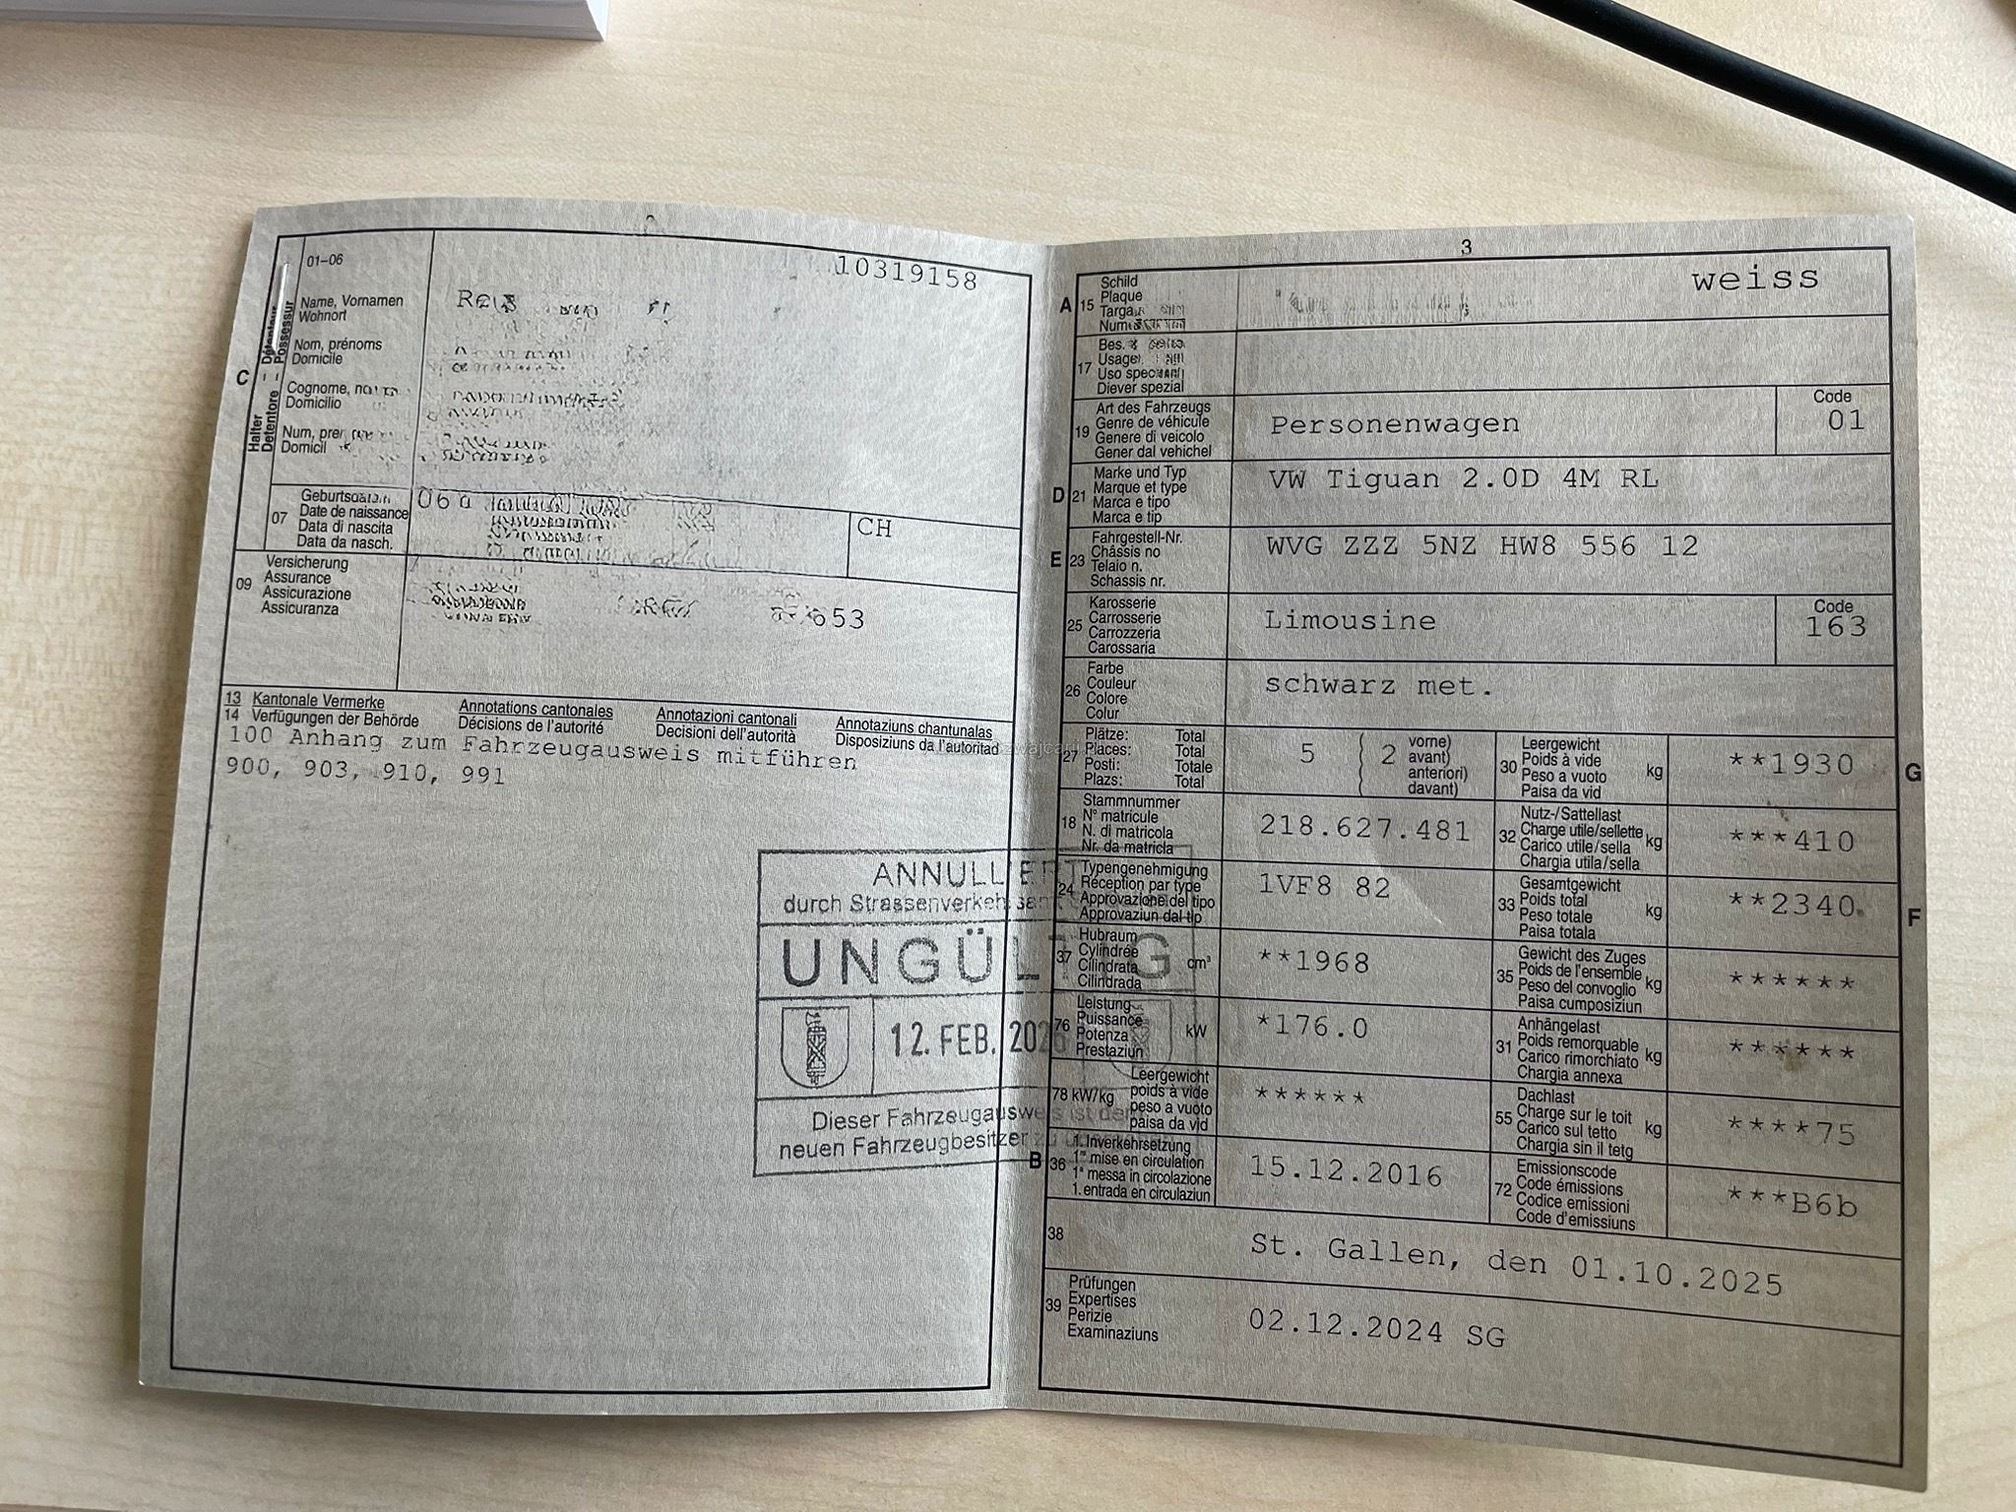 01-06
10319158
Name, Vornamen
Wohnort
Nom, prénoms
Domicile
Domicilio
C
Halter
Détenteur
Detentore
Possessur
07
Date de naissance
Data di nascita
Data da nasch.
CH
09
Versicherung
Assurance
Assicurazione
Assicuranza
653
13 Kantonale Vermerke Annotations cantonales Annotazioni cantonali Annotaziuns chantunalas
14 Verfügungen der Behörde Décisions de l'autorité Decisioni dell'autorità Disposiziuns da l'autoritad
100 Anhang zum Fahrzeugausweis mitführen
900, 903, 910, 991
ANNULLIERT
durch
UNGÜLTIG
12. FEB.
Dieser Fahrzeugausweis ist dem
neuen Fahrzeugbesitzer
3
A 15
Schild
Plaque
Targa
weiss
17
Diever spezial
19
Art des Fahrzeugs
Genre de véhicule
Genere di veicolo
Gener dal vehichel
Personenwagen
Code
01
D 21
Marke und Typ
Marque et type
Marca e tipo
Marca e tip
VW Tiguan 2.0D 4M RL
E 23
Fahrgestell-Nr.
Châssis no
Telaio n.
Schassis nr.
WVG ZZZ 5NZ HW8 556 12
25
Karosserie
Carrosserie
Carrozzeria
Carossaria
Limousine
Code
163
26
Farbe
Couleur
Colore
Colur
schwarz met.
27
Plätze: Total
Places: Total
Posti: Totale
Plazs: Total
5 ( 2 vorne)
avant)
anteriori)
davant)
30
Leergewicht
Poids à vide
Peso a vuoto
Paisa da vid
kg
**1930
G
18
Stammnummer
N° matricule
N. di matricola
Nr. da matricla
218.627.481
32
Nutz-/Sattellast
Charge utile/sellette
Carico utile/sella
Chargia utila/sella
kg
***410
24
Typengenehmigung
Réception par type
Approvazione del tipo
Approvaziun dal tip
1VF8 82
33
Gesamtgewicht
Poids total
Peso totale
Paisa totala
kg
**2340
F
37
Hubraum
Cylindrée
Cilindrata
Cilindrada
cm³
**1968
35
Gewicht des Zuges
Poids de l'ensemble
Peso del convoglio
Paisa cumposiziun
kg
******
76
Leistung
Puissance
Potenza
Prestaziun
kW
*176.0
31
Anhängelast
Poids remorquable
Carico rimorchiato
Chargia annexa
kg
******
78 kW/kg
Leergewicht
poids à vide
peso a vuoto
paisa da vid
******
55
Dachlast
Charge sur le toit
Carico sul tetto
Chargia sin il tetg
kg
****75
B 36
1. Inverkehrsetzung
1re mise en circulation
1a messa in circolazione
1. entrada en circulaziun
15.12.2016
72
Emissionscode
Code émissions
Codice emissioni
Code d'emissiuns
***B6b
38
St. Gallen, den 01.10.2025
39
Prüfungen
Expertises
Perizie
Examinaziuns
02.12.2024 SG